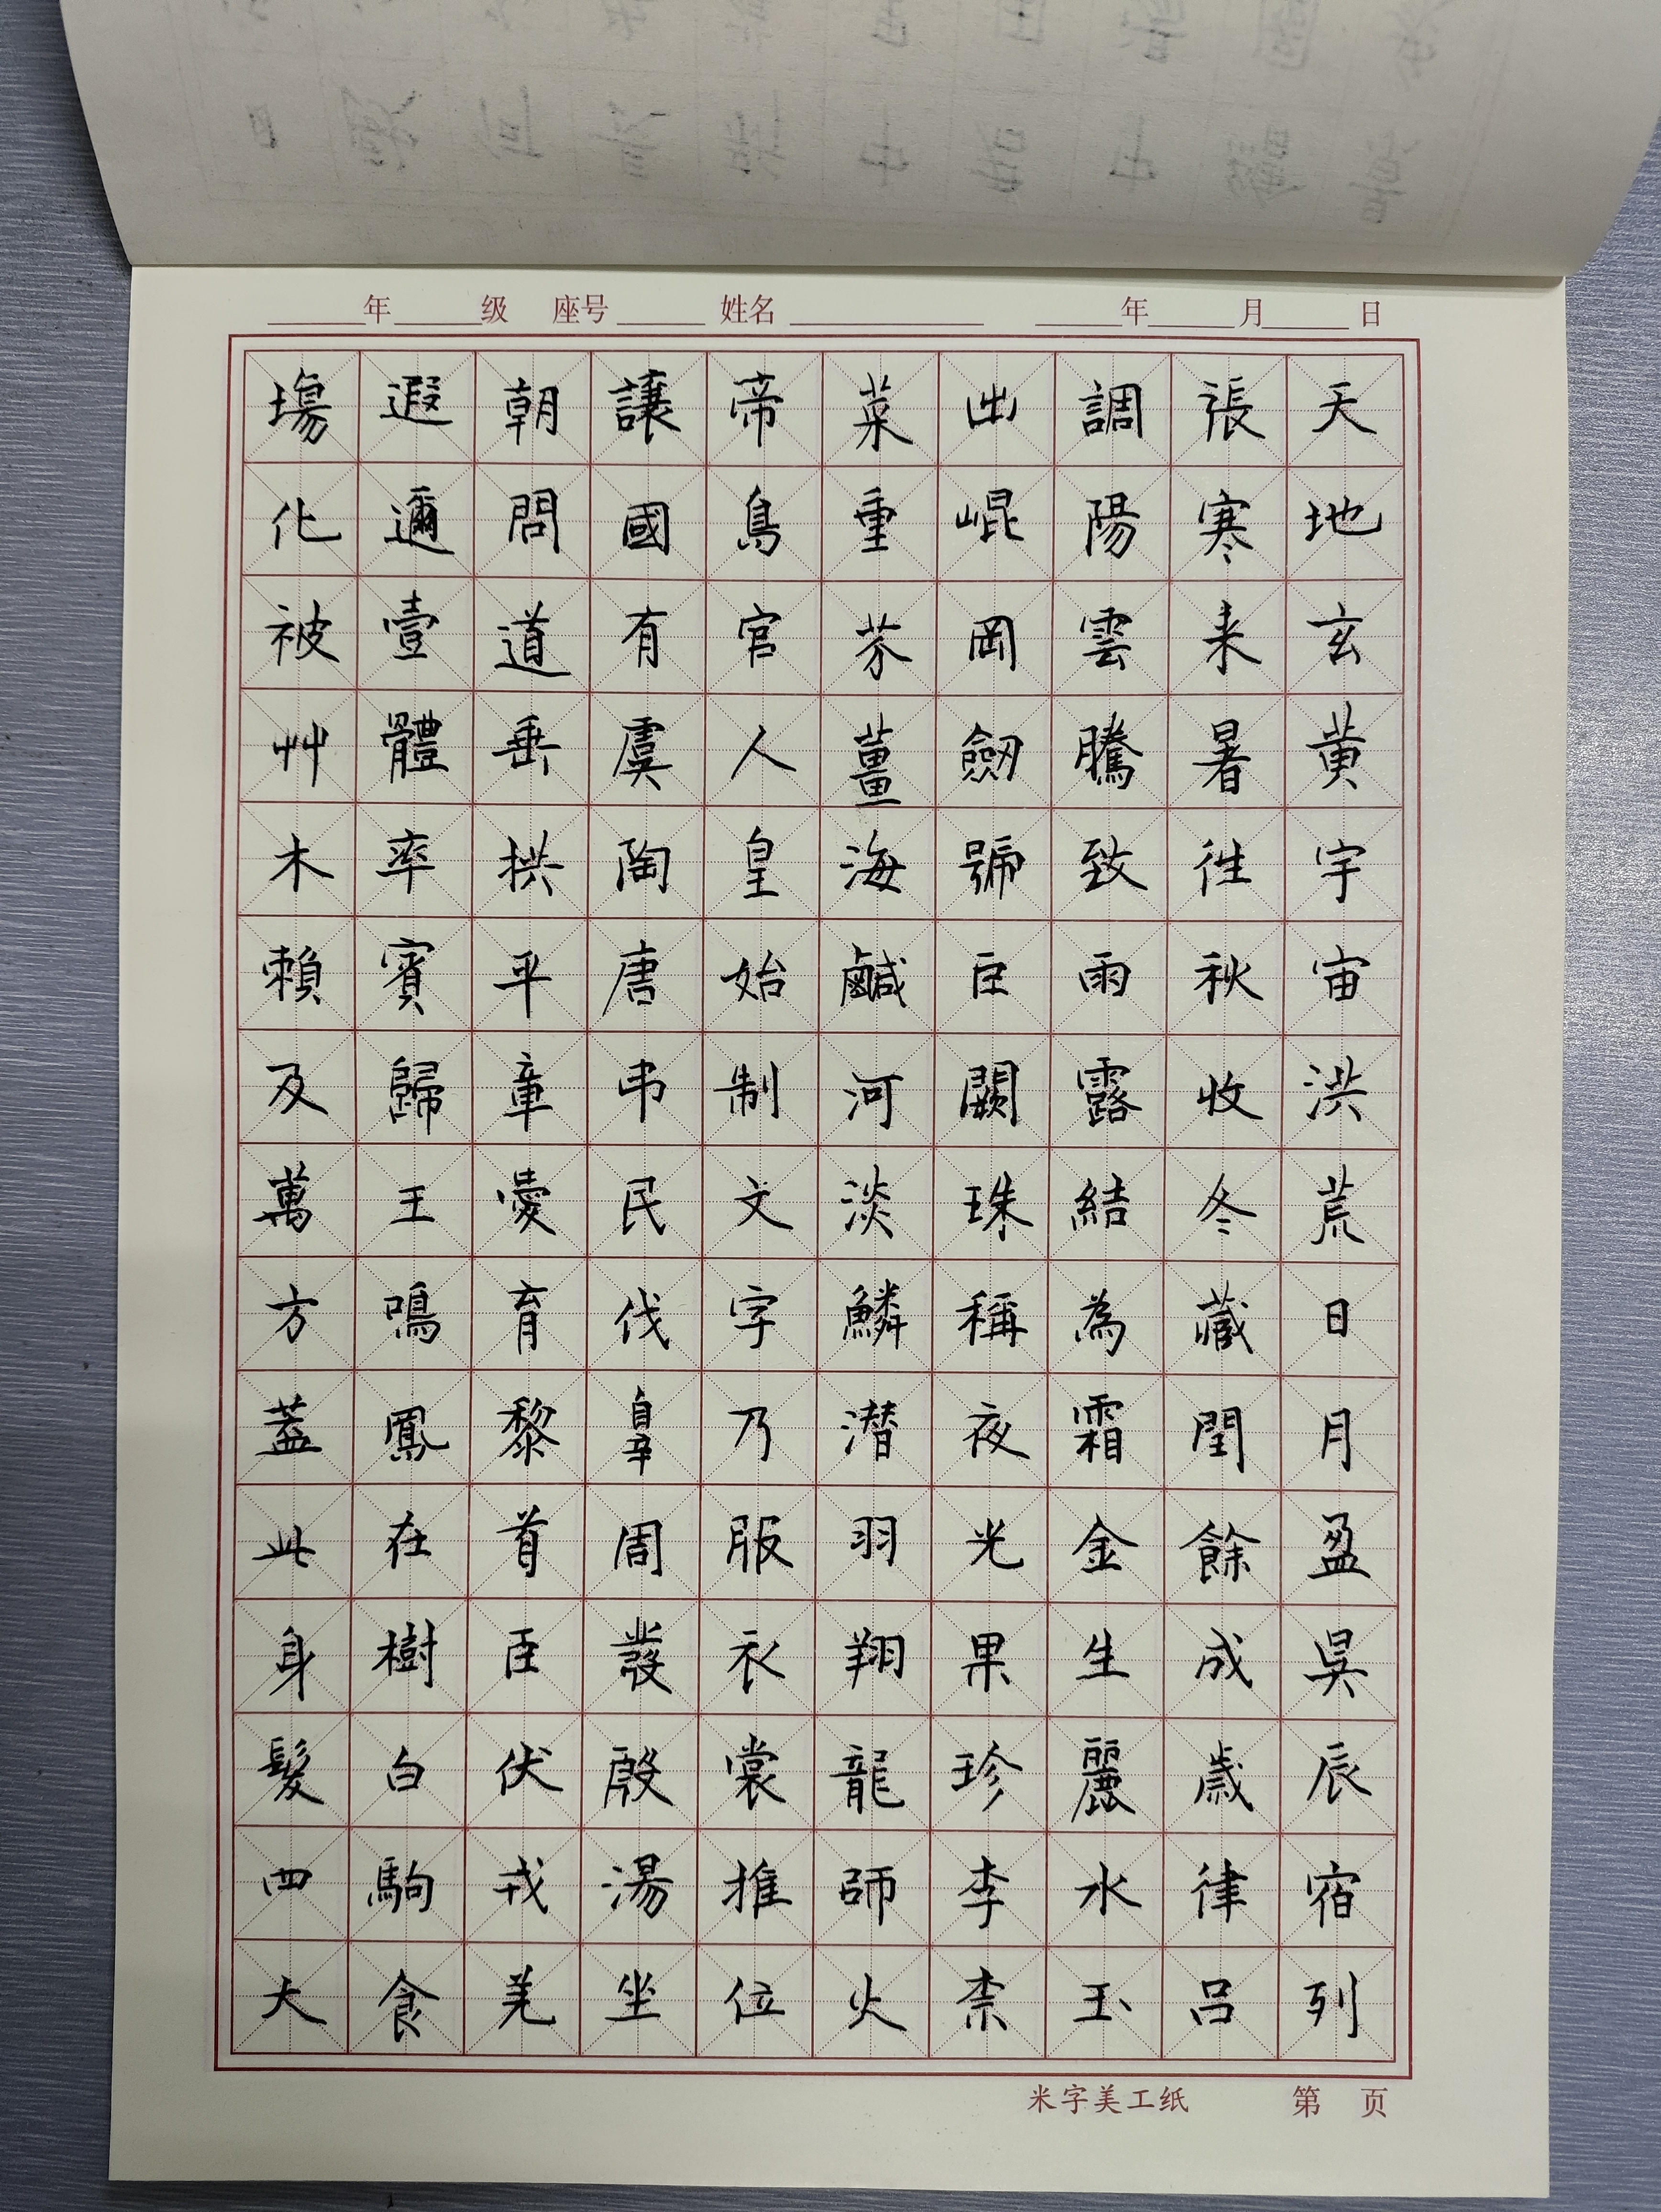 年 级 座号 姓名 年 月 日
天地玄黄宇宙洪荒日月盈昃辰宿列
張寒来暑往秋收冬藏閏餘成歲律吕
調陽雲騰致雨露結為霜金生麗水玉
出崐岡劒號巨闕珠稱夜光果珍李柰
菜重芥薑海鹹河淡鱗潛羽翔龍師火
帝鳥官人皇始制文字乃服衣裳推位
讓國有虞陶唐弔民伐辠周發殷湯坐
朝問道垂拱平章愛育黎首臣伏戎羌
遐邇壹體率賓歸王鳴鳳在樹白駒食
塲化被艸木賴及萬方蓋此身髮四大
米字美工纸 第 页